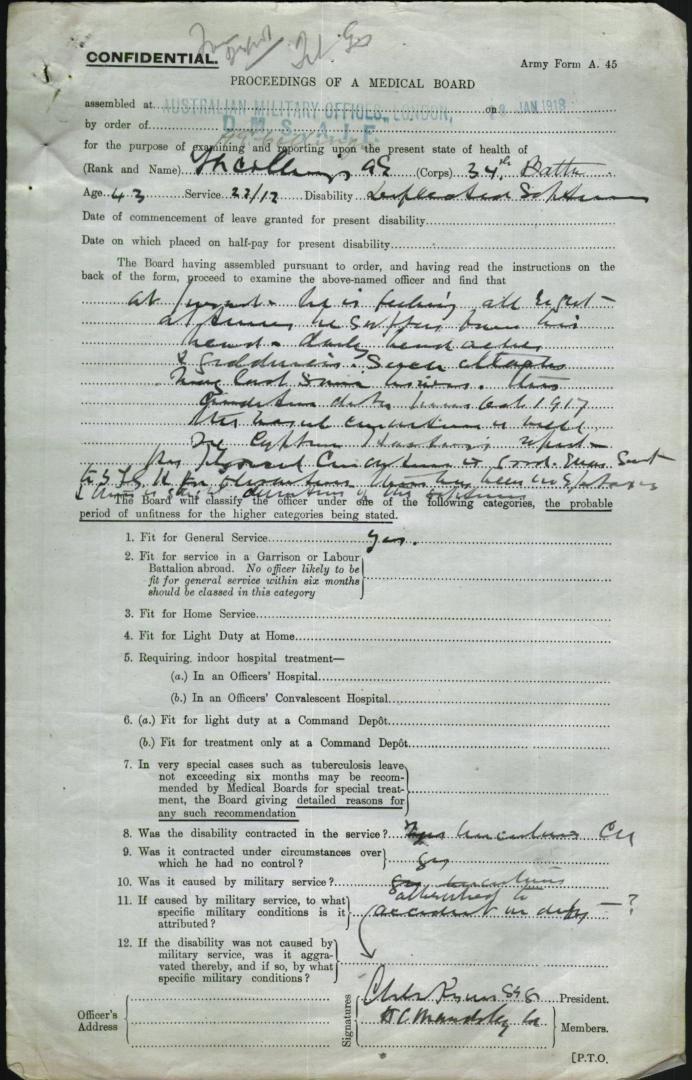 CONFIDENTIAL.
Army Form A. 45
PROCEEDINGS OF A MEDICAL BOARD
assembled at AUSTRALIAN MILITARY OFFICES, LONDON, on JAN 1918
by order of D. M. S. A.I.F.
for the purpose of examining and reporting upon the present state of health of
(Rank and Name) (Corps) 34th Battn
Age 43 Service Disability Deflected Septum
Date of commencement of leave granted for present disability
Date on which placed on half-pay for present disability
The Board having assembled pursuant to order, and having read the instructions on the
back of the form, proceed to examine the above-named officer and find that
at present he is feeling all right
at times he suffers from his
head - daily headaches
& giddiness. Such attacks
may last some hours. This
condition dates from Oct 1917
report
His general condition is good.
The Board will classify the officer under one of the following categories, the probable
period of unfitness for the higher categories being stated.
1. Fit for General Service yes.
2. Fit for service in a Garrison or Labour
Battalion abroad. No officer likely to be
fit for general service within six months
should be classed in this category
3. Fit for Home Service
4. Fit for Light Duty at Home
5. Requiring indoor hospital treatment—
(a.) In an Officers' Hospital
(b.) In an Officers' Convalescent Hospital
6. (a.) Fit for light duty at a Command Depôt
(b.) Fit for treatment only at a Command Depôt
7. In very special cases such as tuberculosis leave
not exceeding six months may be recom-
mended by Medical Boards for special treat-
ment, the Board giving detailed reasons for
any such recommendation
8. Was the disability contracted in the service?
9. Was it contracted under circumstances over
which he had no control? yes
10. Was it caused by military service?
11. If caused by military service, to what
specific military conditions is it
attributed? attributed to
accident on duty - ?
12. If the disability was not caused by
military service, was it aggra-
vated thereby, and if so, by what
specific military conditions?
Officer's
Address
Signatures
President.
Members.
[P.T.O.